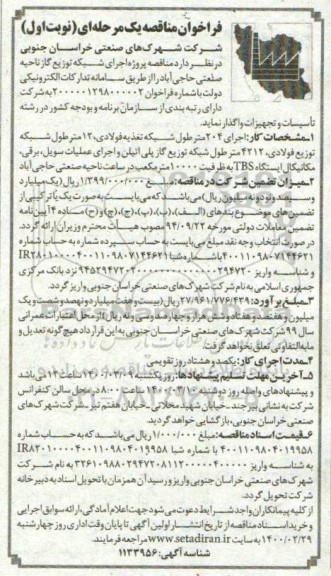 فراخوان مناقصه یک مرحله‌ای (نوبت اول)
شرکت شهرک‌های صنعتی خراسان جنوبی
در نظر دارد مناقصه پروژه اجرای شبکه توزیع گاز ناحیه
صنعتی حاجی آباد را از طریق سامانه تدارکات الکترونیکی
دولت با شماره فراخوان ۲۰۰۰۰۰۱۲۹۸۰۰۰۰۰۲ به شرکت
دارای رتبه بندی از سازمان برنامه و بودجه کشور در رشته
تأسیسات و تجهیزات واگذار نماید.
۱ـ مشخصات کار: اجرای ۲۰۴ متر طول شبکه تغذیه فولادی، ۱۲ متر طول شبکه
توزیع فولادی، ۴۲۱۲ متر طول شبکه توزیع گاز پلی اتیلن و اجرای عملیات سویل، برقی،
مکانیکال ایستگاه TBS به ظرفیت ۱۰۰۰۰ متر مکعب در ساعت ناحیه صنعتی حاجی آباد
۲ـ میزان تضمین شرکت در مناقصه: مبلغ ۱/۳۹۹/۰۰۰/۰۰۰ ریال (یک میلیارد
و سیصد و نود و نه میلیون ریال) می‌باشد که می‌بایست به صورت یک یا ترکیبی از
تضمین های موضوع بندهای (الف)، (ب)، (پ)، (ج)، (چ) و (ح) ماده ۴ آیین‌نامه
تضمین معاملات دولتی مورخه ۹۴/۰۹/۲۲ مصوب هیأت محترم وزیران ارائه گردد.
در صورت انتخاب وجه نقد مبلغ می‌بایست به حساب سپرده شماره به حساب شماره
و شناسه واریز نزد بانک مرکزی
جمهوری اسلامی به نام شرکت شهرک‌های صنعتی خراسان جنوبی واریز گردد.
۳ـ مبلغ برآورد: ۲۷/۹۶۱/۷۷۶/۴۳۹ ریال (بیست و هفت میلیارد و نهصد و شصت و یک
میلیون و هفتصد و هفتاد و شش هزار و چهارصد و سی و نه ریال) از محل اعتبارات عمرانی
سال ۹۹ شرکت شهرک های صنعتی خراسان جنوبی به این قرارداد هیچ گونه تعدیل و
مابه التفاوتی تعلق نخواهد گرفت.
۴ـ مدت اجرای کار: یکصد و هشتاد روز تقویمی
۵ـ آخرین مهلت تسلیم پیشنهادها: روز یکشنبه ساعت ۱۴ می باشد
و پیشنهادهای واصله روز دوشنبه ۱۴۰۰/۰۳/۱۰ ساعت ۸:۰۰ در محل سالن کنفرانس
شرکت به نشانی بیرجند ـ خیابان شهید محلاتی ـ خیابان هفتم تیر ـ شرکت شهرک های
صنعتی خراسان جنوبی، بازگشایی خواهد گردید.
۶ـ قیمت اسناد مناقصه: مبلغ ۱/۰۰۰/۰۰۰ ریال می‌باشد که به حساب شماره
به شناسه واریز به نام شرکت
شهرک های صنعتی خراسان جنوبی واریز و رسید آن همزمان با تحویل اسناد به دبیرخانه
شرکت تحویل گردد.
از کلیه پیمانکاران واجد شرایط دعوت می شود جهت اعلام آمادگی، ارائه سوابق اجرایی
و خرید اسناد مناقصه از تاریخ انتشار اولین آگهی تا پایان وقت اداری روز چهارشنبه
۱۴۰۰/۰۲/۲۹ به سایت www.setadiran.ir مراجعه فرمایند.
شناسه آگهی: ۱۱۳۳۹۵۶